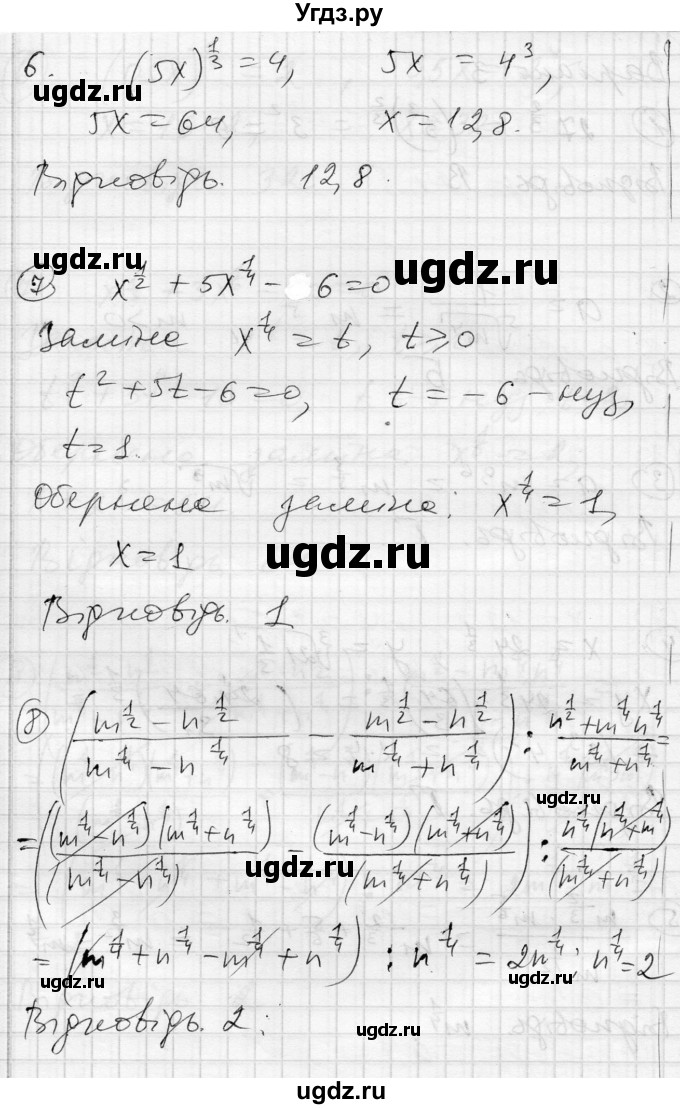 Угдз.ру
6. (5x)^{1/3} = 4, 5x = 4^3,
ugdz.ru
5x = 64, x = 12,8.
Відповідь. 12,8.
ugdz.ru
ugdz.ru
7 x^{1/2} + 5x^{1/4} - 6 = 0
Заміна x^{1/4} = t, t ≥ 0
t^2 + 5t - 6 = 0, t = -6 - нуз,
t = 1.
Обернена заміна: x^{1/4} = 1,
ugdz.ru
x = 1
Відповідь. 1
ugdz.ru
8 ((m^{1/2} - n^{1/2})/(m^{1/4} - n^{1/4}) - (m^{1/2} - n^{1/2})/(m^{1/4} + n^{1/4})) : (n^{1/2} + m^{1/4}n^{1/4})/(m^{1/4} + n^{1/4}) =
ugdz.ru
= ((m^{1/4} - n^{1/4})(m^{1/4} + n^{1/4})/(m^{1/4} - n^{1/4}) - (m^{1/4} - n^{1/4})(m^{1/4} + n^{1/4})/(m^{1/4} + n^{1/4})) : n^{1/4}(n^{1/4} + m^{1/4})/(m^{1/4} + n^{1/4})
ugdz.ru
= (m^{1/4} + n^{1/4} - m^{1/4} + n^{1/4}) : n^{1/4} = 2n^{1/4} : n^{1/4} = 2
ugdz.ru
ugdz.ru
Відповідь. 2.
ugdz.ru
ugdz.ru